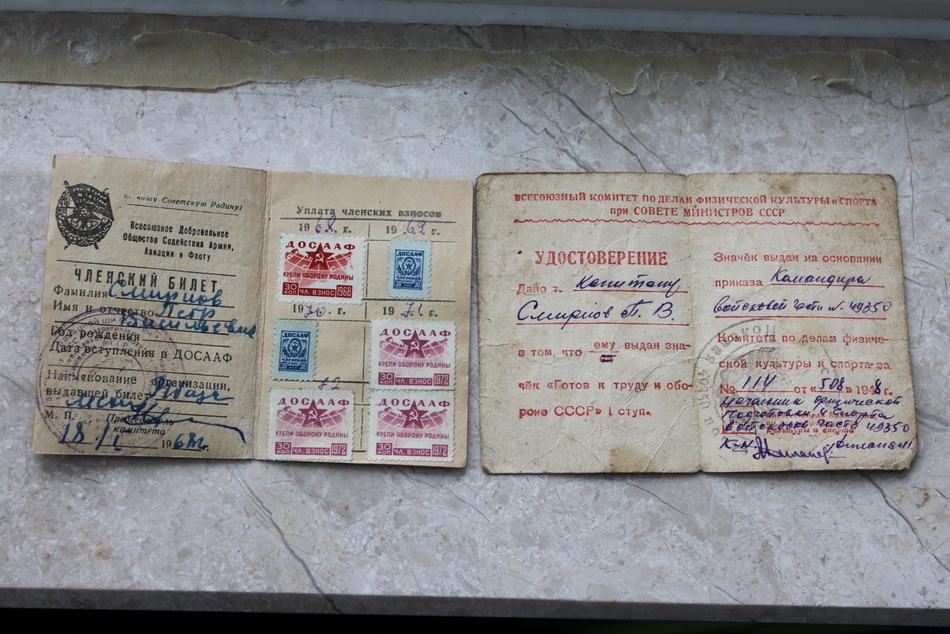 нашу Советскую Родину!
Всесоюзное Добровольное
Общество Содействия Армии,
Авиации и Флоту
ЧЛЕНСКИЙ БИЛЕТ
Фамилия Смирнов
Имя и отчество Петр
Васильевич
Год рождения
Дата вступления в ДОСААФ
Наименование организации,
выдавшей билет
М. П. Председатель
комитета
18/I 1968 г.
Уплата членских взносов
1968. г. 1969. г.
ДОСААФ
КРЕПИ ОБОРОНУ РОДИНЫ
30 КОП ЧЛ. ВЗНОС 1968
ДОСААФ
1970. г. 1971. г.
ДОСААФ
ДОСААФ
КРЕПИ ОБОРОНУ РОДИНЫ
30 КОП ЧЛ. ВЗНОС 1972
72
ДОСААФ
КРЕПИ ОБОРОНУ РОДИНЫ
30 КОП ЧЛ. ВЗНОС 1972
ДОСААФ
КРЕПИ ОБОРОНУ РОДИНЫ
30 КОП ЧЛ. ВЗНОС 1972
ВСЕСОЮЗНЫЙ КОМИТЕТ ПО ДЕЛАМ ФИЗИЧЕСКОЙ КУЛЬТУРЫ и СПОРТА
при СОВЕТЕ МИНИСТРОВ СССР
УДОСТОВЕРЕНИЕ
Дано т. Капитану
Смирнов П. В.
в том, что ему выдан зна-
чёк «Готов к труду и обо-
роне СССР» I ступ.
Значёк выдан на основании
приказа Командира
Войсковой части № 49350
Комитета по делам физиче-
ской культуры и спорта за
№ 114 от «5 08» 1948 г.
Начальник физической
подготовки и спорта
войсковой части 49350
К-н